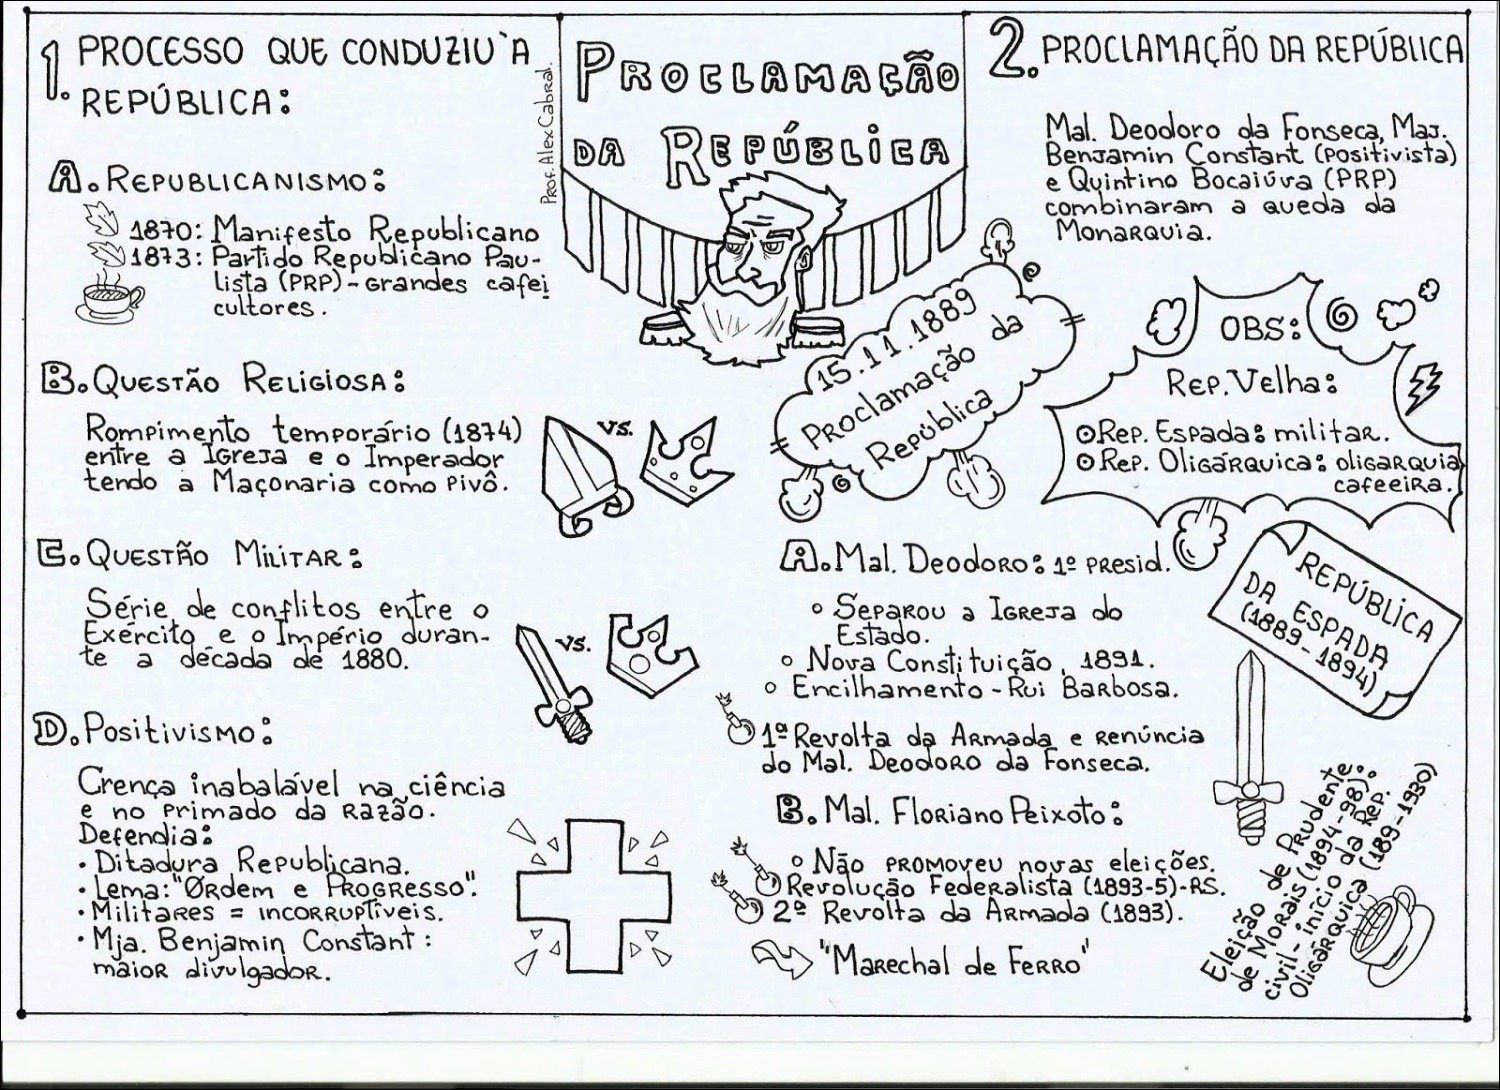 1. PROCESSO QUE CONDUZIU`A
REPÚBLICA:
A. REPUBLICANISMO:
1870: Manifesto Republicano
1873: Partido Republicano Pau-
lista (PRP) - Grandes cafei
cultores.
B. QUESTÃO RELIGIOSA:
Rompimento temporário (1874)
entre a Igreja e o Imperador
tendo a Maçonaria como Pivô.
vs.
C. QUESTÃO MILITAR:
Série de conflitos entre o
Exército e o Império duran-
te a década de 1880.
vs.
D. Positivismo:
Crença inabalável na ciência
e no primado da Razão.
Defendia:
• Ditadura Republicana.
• Lema: "Ordem e Progresso".
• Militares = incorruptíveis.
• Mja. Benjamin Constant:
maior divulgador.
Prof. Alex Cabral.
PROCLAMAÇÃO
DA REPÚBLICA
15.11.1889
Proclamação da
República
2. PROCLAMAÇÃO DA REPÚBLICA
Mal. Deodoro da Fonseca, Maj.
Benjamin Constant (positivista)
e Quintino Bocaiúva (PRP)
combinaram a queda da
Monarquia.
OBS:
Rep. Velha:
Rep. Espada: militar.
Rep. Oligárquica: oligarquia
cafeeira.
REPÚBLICA
DA ESPADA
(1889-1894)
A. Mal. Deodoro: 1º presid.
° Separou a Igreja do
Estado.
° Nova Constituição, 1891.
° Encilhamento - Rui Barbosa.
1ª Revolta da Armada e renúncia
do Mal. Deodoro da Fonseca.
B. Mal. Floriano Peixoto:
° Não promoveu novas eleições.
Revolução Federalista (1893-5)-RS.
2ª Revolta da Armada (1893).
"Marechal de Ferro"
Eleição de Prudente
de Morais (1894-98):
civil - início da Rep.
Oligárquica (189-1930)